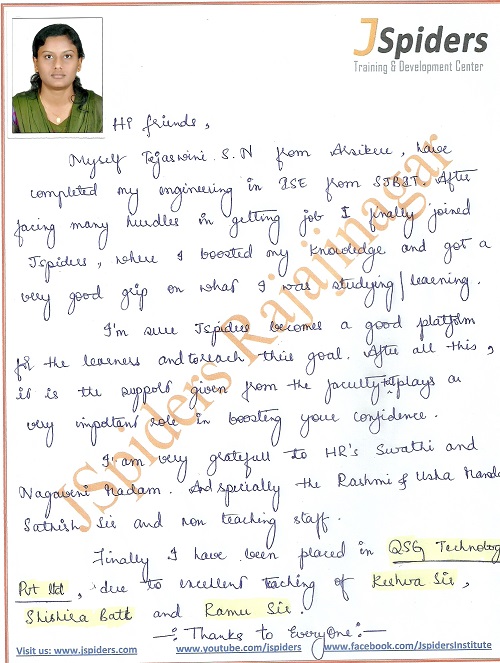 JSpiders
Training & Development Center
Hi friends,
Myself Tejaswini. S.N from Arsikere, have
completed my engineering in ISE from SJBIT. After
facing many hurdles in getting job I finally joined
Jspiders, where I boosted my knowledge and got a
very good grip on what I was studying/learning.
I'm sure Jspiders becomes a good platform
for the learners and to reach their goal. After all this,
it is the support given from the faculty that plays a
very important role in boosting your confidence.
I am very gratefull to HR's Swathi and
Nagaveni Madam. And specially the Rashmi & Usha
Sathish Sir and non teaching staff.
Finally I have been placed in QSG Technology
Pvt ltd, due to excellent teaching of Keshva Sir,
Shishira Batt and Ramu Sir.
—: Thanks to Everyone :—
Visit us: www.jspiders.com www.youtube.com/jspiders www.facebook.com/JspidersInstitute
JSpiders Rajajinagar